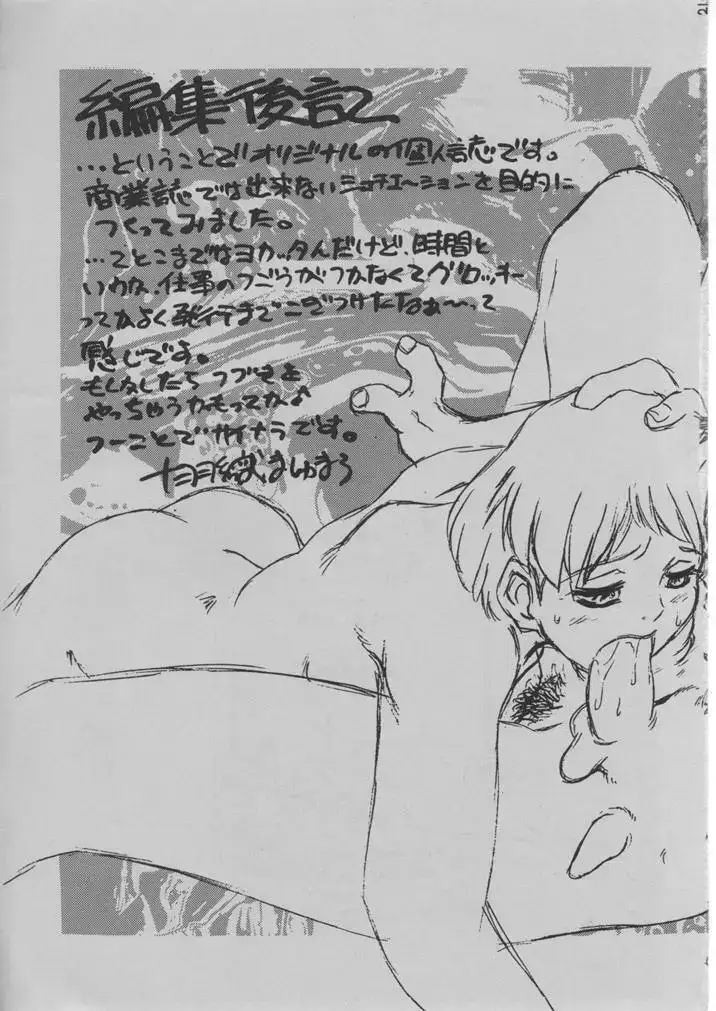 21
編集後記
…ということでオリジナルの個人誌です。
商業誌では出来ないシュチエーションを目的に
つくってみました。
…てとこまではヨカッタんだけど、時間と
いうか、仕事のつごうがつかなくてグロッキー
ってかよく発行までこぎつけたなぁ〜って
感じです。
もしかしたらつづきを
やっちゃうかもってか♪
つーことでサイナラです。